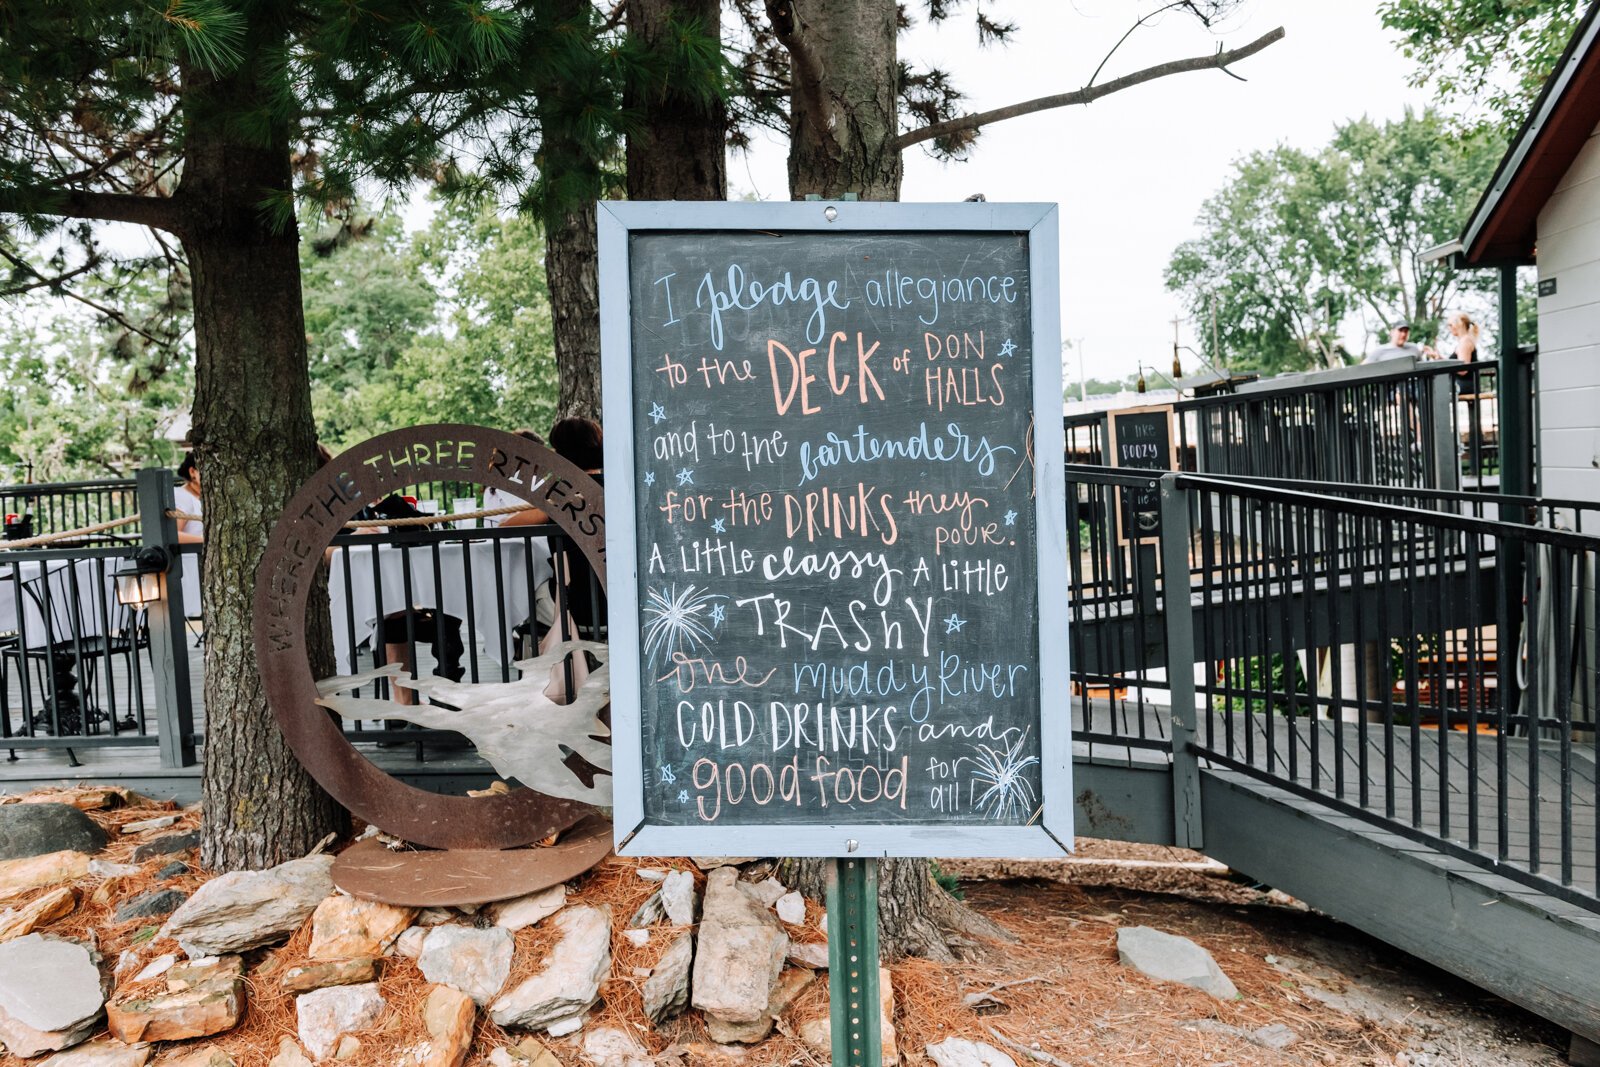 I pledge allegiance
to the DECK of DON HALLS
and to the bartenders
for the DRINKS they pour.
A little classy A little
TRASHY
one muddy River
COLD DRINKS and
good food for all!
WHERE THE THREE RIVERS
I like
BOOZY